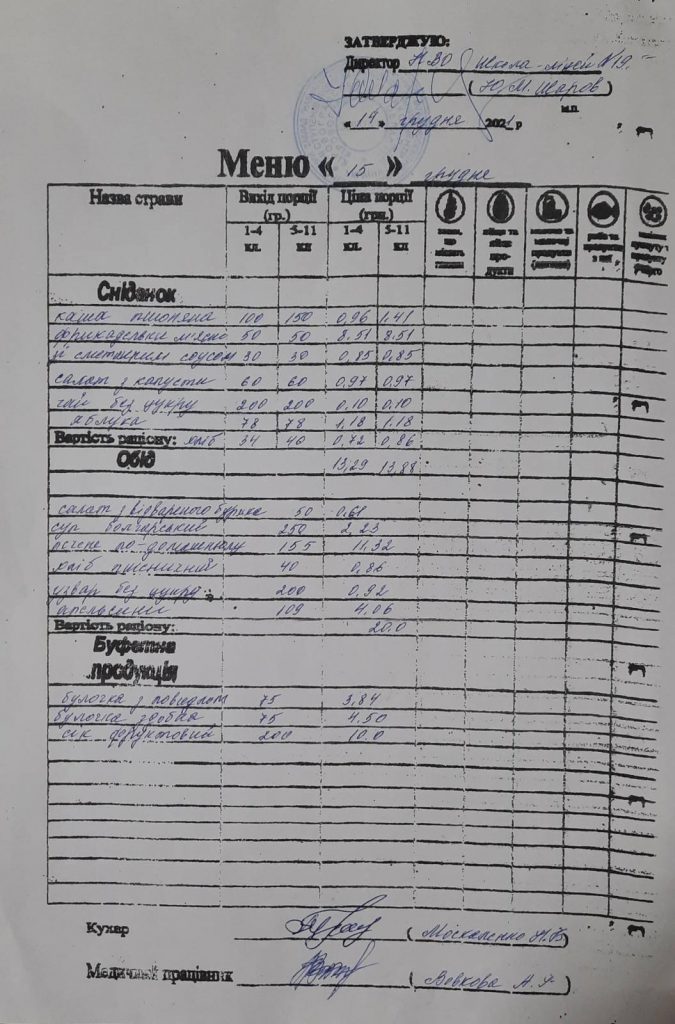 ЗАТВЕРДЖУЮ:
Директор НВО Школа-ліцей №19
(Ю.М. Шаров)
м.п.
«14» грудня 2021 р
Меню « 15 » грудня
Назва страви Вихід порції (гр.) Ціна порції (грн.)
1-4 кл. 5-11 кл 1-4 кл. 5-11 кл
Сніданок
каша пшоняна 100 150 0,96 1,41
фрикадельки м'ясні 50 50 8,51 8,51
зі сметанним соусом 30 30 0,85 0,85
салат з капусти 60 60 0,97 0,97
чай без цукру 200 200 0,10 0,10
яблука 78 78 1,18 1,18
Вартість раціону: хліб 34 40 0,72 0,86
Обід 13,29 13,88
салат з відвареного буряка 50 0.61
суп болгарський 250 2,23
печеня по-домашньому 155 11,32
хліб пшеничний 40 0,86
узвар без цукру 200 0,92
апельсини 109 4,06
Вартість раціону: 20.0
Буфетна
продукція
булочка з повидлом 75 3,84
булочка здобна 75 4.50
сік фруктовий 200 10.0
Кухар (Москаленко Н.В)
Медичний працівник (Вовкова А.)